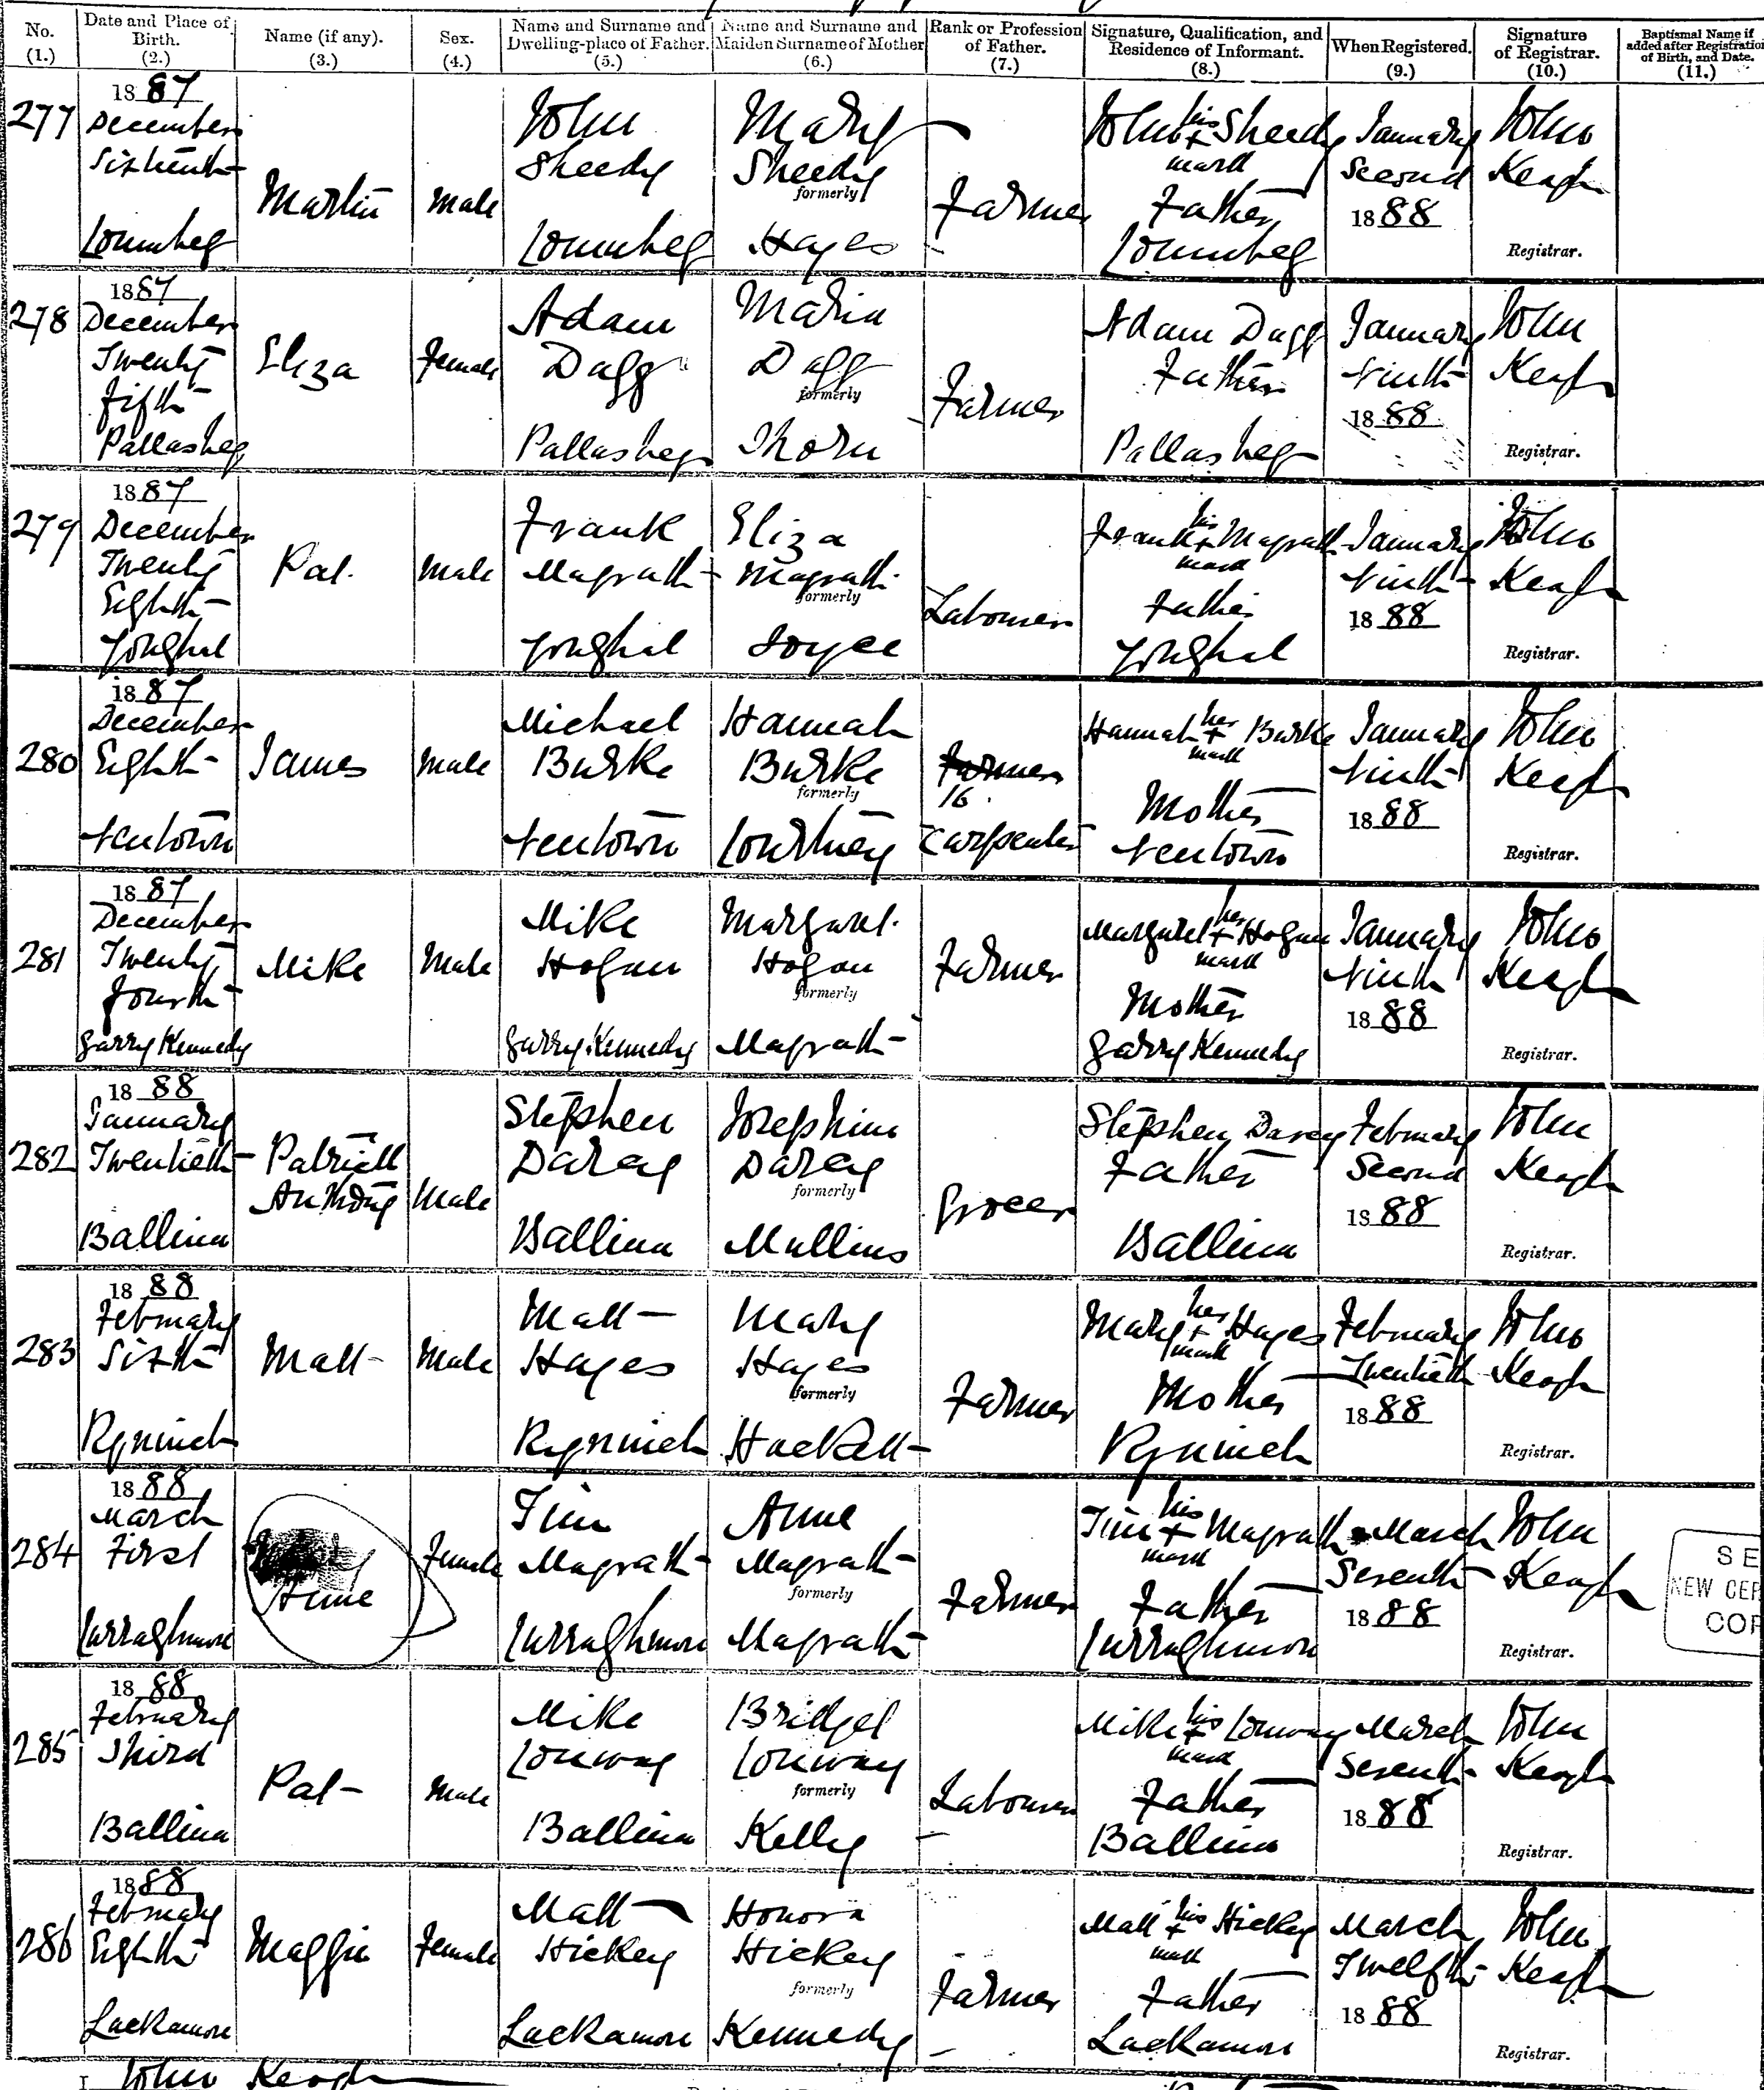 No. (1.)
Date and Place of Birth. (2.)
Name (if any). (3.)
Sex. (4.)
Name and Surname and Dwelling-place of Father. (5.)
Name and Surname and Maiden Surname of Mother (6.)
Rank or Profession of Father. (7.)
Signature, Qualification, and Residence of Informant. (8.)
When Registered. (9.)
Signature of Registrar. (10.)
Baptismal Name if added after Registration of Birth, and Date. (11.)
277
1887 December Sixteenth
Martin
Male
John Sheedy
Mary Sheedy formerly Hayes
Farmer
John his + mark Sheedy Father
January Second 1888
John Keogh Registrar.
278
1887 December Twenty Fifth Pallasbeg
Eliza
Female
Adam Dagg Pallasbeg
Maria Dagg formerly Thorn
Farmer
Adam Dagg Father Pallasbeg
January Ninth 1888
John Keogh Registrar.
279
1887 December Twenty Eighth Youghal
Pat.
Male
Frank Magrath Youghal
Eliza Magrath formerly Joyce
Labourer
Frank his + mark Magrath Father Youghal
January Ninth 1888
John Keogh Registrar.
280
1887 December Eighth Newtown
James
Male
Michael Burke Newtown
Hannah Burke formerly Courtney
Farmer
16
Carpenter
Hannah her + mark Burke Mother Newtown
January Ninth 1888
John Keogh Registrar.
281
1887 December Twenty Fourth Garry Kennedy
Mike
Male
Mike Hogan Garry Kennedy
Margaret Hogan formerly Magrath
Farmer
Margaret her + mark Hogan Mother Garry Kennedy
January Ninth 1888
John Keogh Registrar.
282
1888 January Twentieth Ballina
Patrick Anthony
Male
Stephen Darcy Ballina
Josephine Darcy formerly Mullins
Grocer
Stephen Darcy Father Ballina
February Second 1888
John Keogh Registrar.
283
1888 February Sixth Ryninch
Matt
Male
Matt Hayes Ryninch
Mary Hayes formerly Hackett
Farmer
Mary her + mark Hayes Mother Ryninch
February Twentieth 1888
John Keogh Registrar.
284
1888 March First Curraghmore
Anne
Female
Tim Magrath Curraghmore
Anne Magrath formerly Magrath
Farmer
Tim his + mark Magrath Father Curraghmore
March Seventh 1888
John Keogh Registrar.
SE
NEW CER
COR
285
1888 February Third Ballina
Pat
Male
Mike Conway Ballina
Bridget Conway formerly Kelly
Labourer
Mike his + mark Conway Father Ballina
March Seventh 1888
John Keogh Registrar.
286
1888 February Eighth Lackamore
Maggie
Female
Matt Hickey Lackamore
Honora Hickey formerly Kennedy
Farmer
Matt his + mark Hickey Father Lackamore
March Twelfth 1888
John Keogh Registrar.
I John Keogh